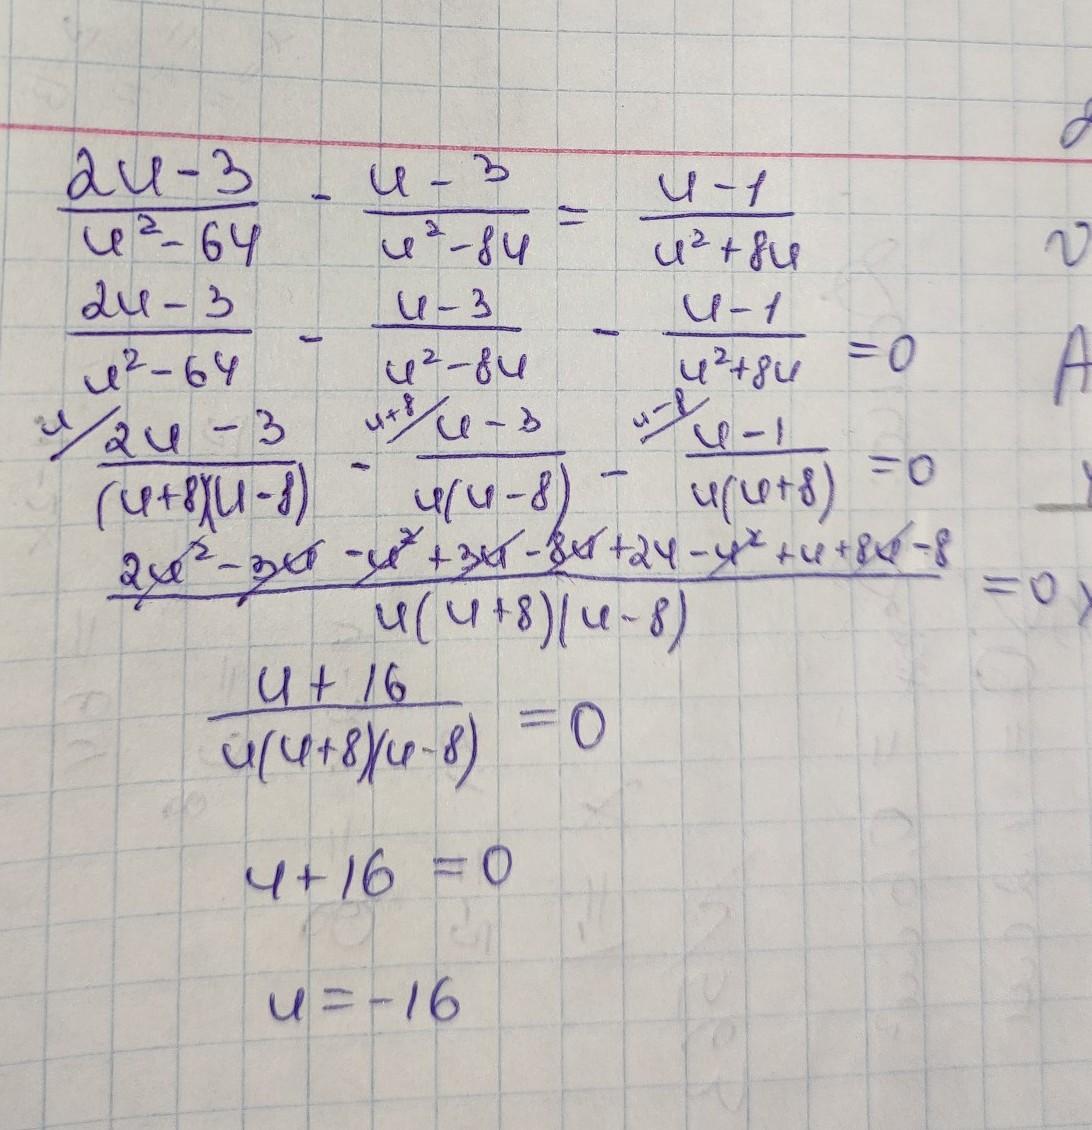 2u-3/u²-64 - u-3/u²-8u = u-1/u²+8u
2u-3/u²-64 - u-3/u²-8u - u-1/u²+8u =0
u/ 2u-3/(u+8)(u-8) - u+8/ u-3/u(u-8) - u-8/ u-1/u(u+8) =0
2u²-3u-u²+3u-8u+24-u²+u+8u-8/u(u+8)(u-8) =0
u+16/u(u+8)(u-8) =0
u+16 =0
u=-16